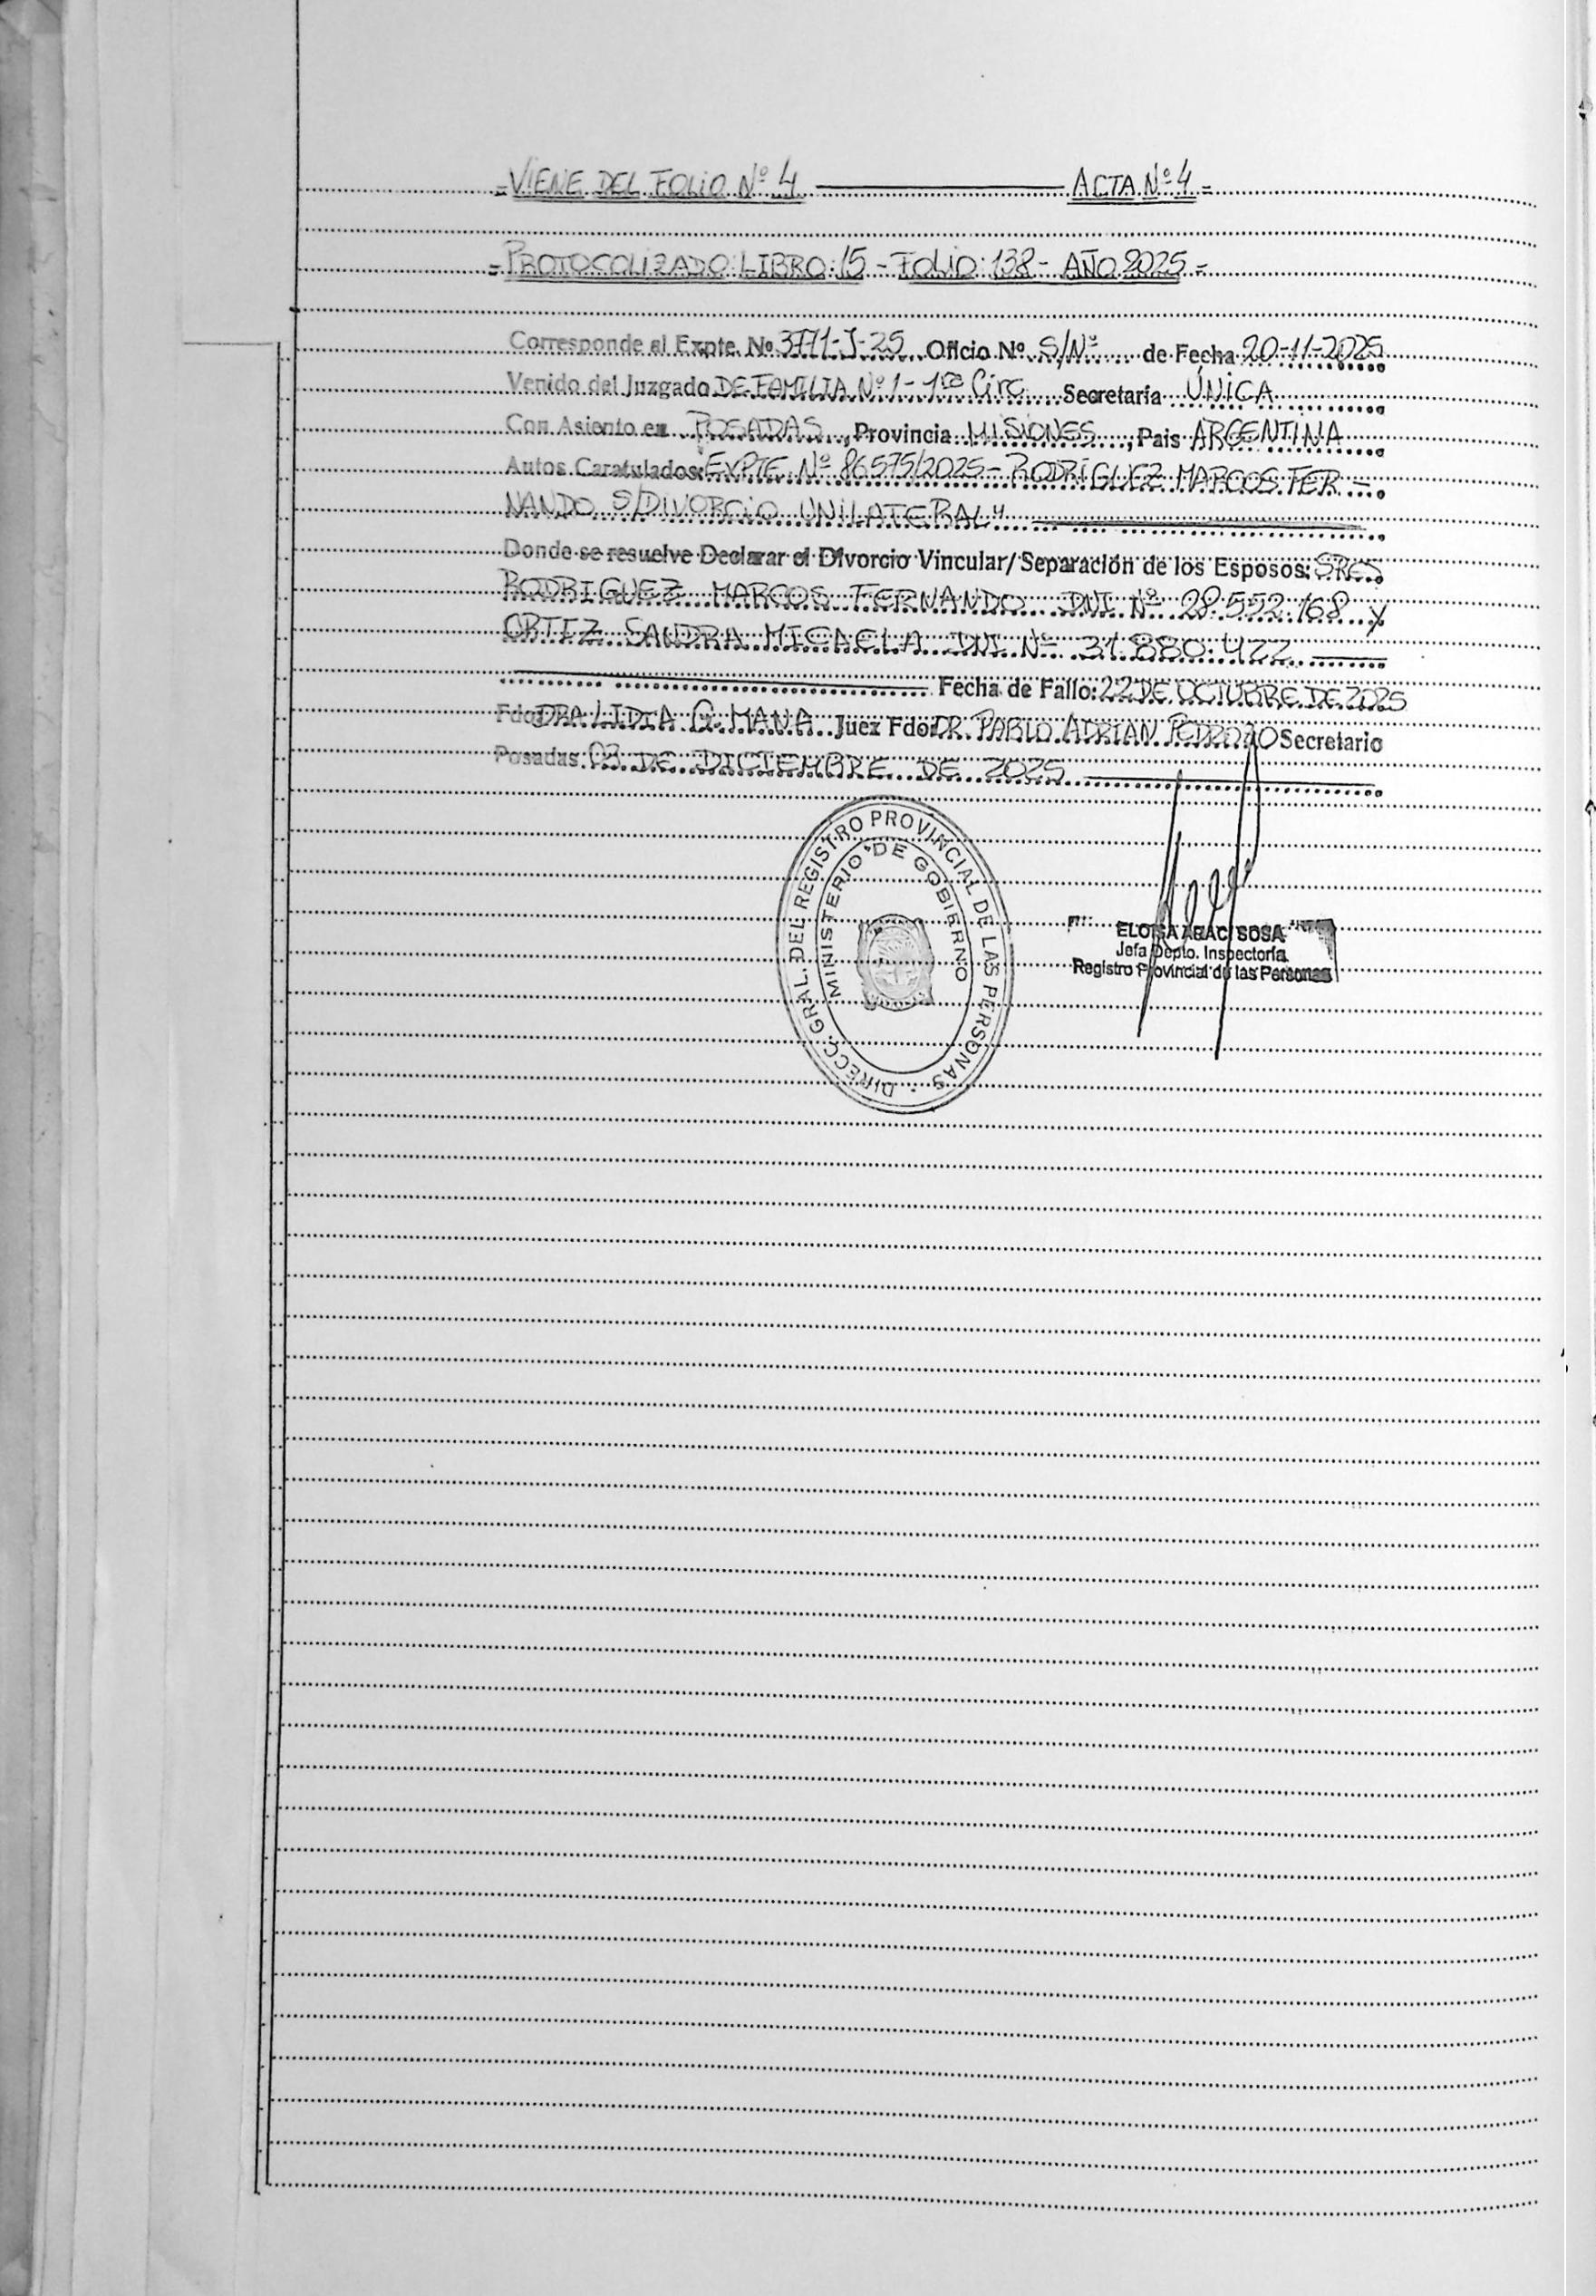 =VIENE DEL FOLIO Nº 4 ACTA Nº 4=
=PROTOCOLIZADO: LIBRO: 15 - FOLIO: 138 - AÑO 2025=
Corresponde al Expte. Nº 3771-J-25 Oficio Nº S/Nº de Fecha 20-11-2025
Venido del Juzgado DE FAMILIA Nº 1 - 1ra Circ Secretaría ÚNICA
Con Asiento en POSADAS, Provincia MISIONES, Pais ARGENTINA
Autos Caratulados: EXPTE Nº 86575/2025 - RODRIGUEZ MARCOS FER-
NANDO S/DIVORCIO UNILATERAL"
Donde se resuelve Declarar el Divorcio Vincular/Separación de los Esposos: SRES
RODRIGUEZ MARCOS FERNANDO DNI Nº 28.552.168 y
ORTIZ SANDRA MICAELA DNI Nº 31.880.477
Fecha de Fallo: 22 DE OCTUBRE DE 2025
Fdo: DRA LIDIA G. MANA Juez Fdo: DR. PABLO ADRIAN PEDROZO Secretario
Posadas 03 DE DICIEMBRE DE 2025
DIRECC. GRAL. DEL REGISTRO PROVINCIAL DE LAS PERSONAS
MINISTERIO DE GOBIERNO
ELOISA ARACI SOSA
Jefa Depto. Inspectoría
Registro Provincial de las Personas